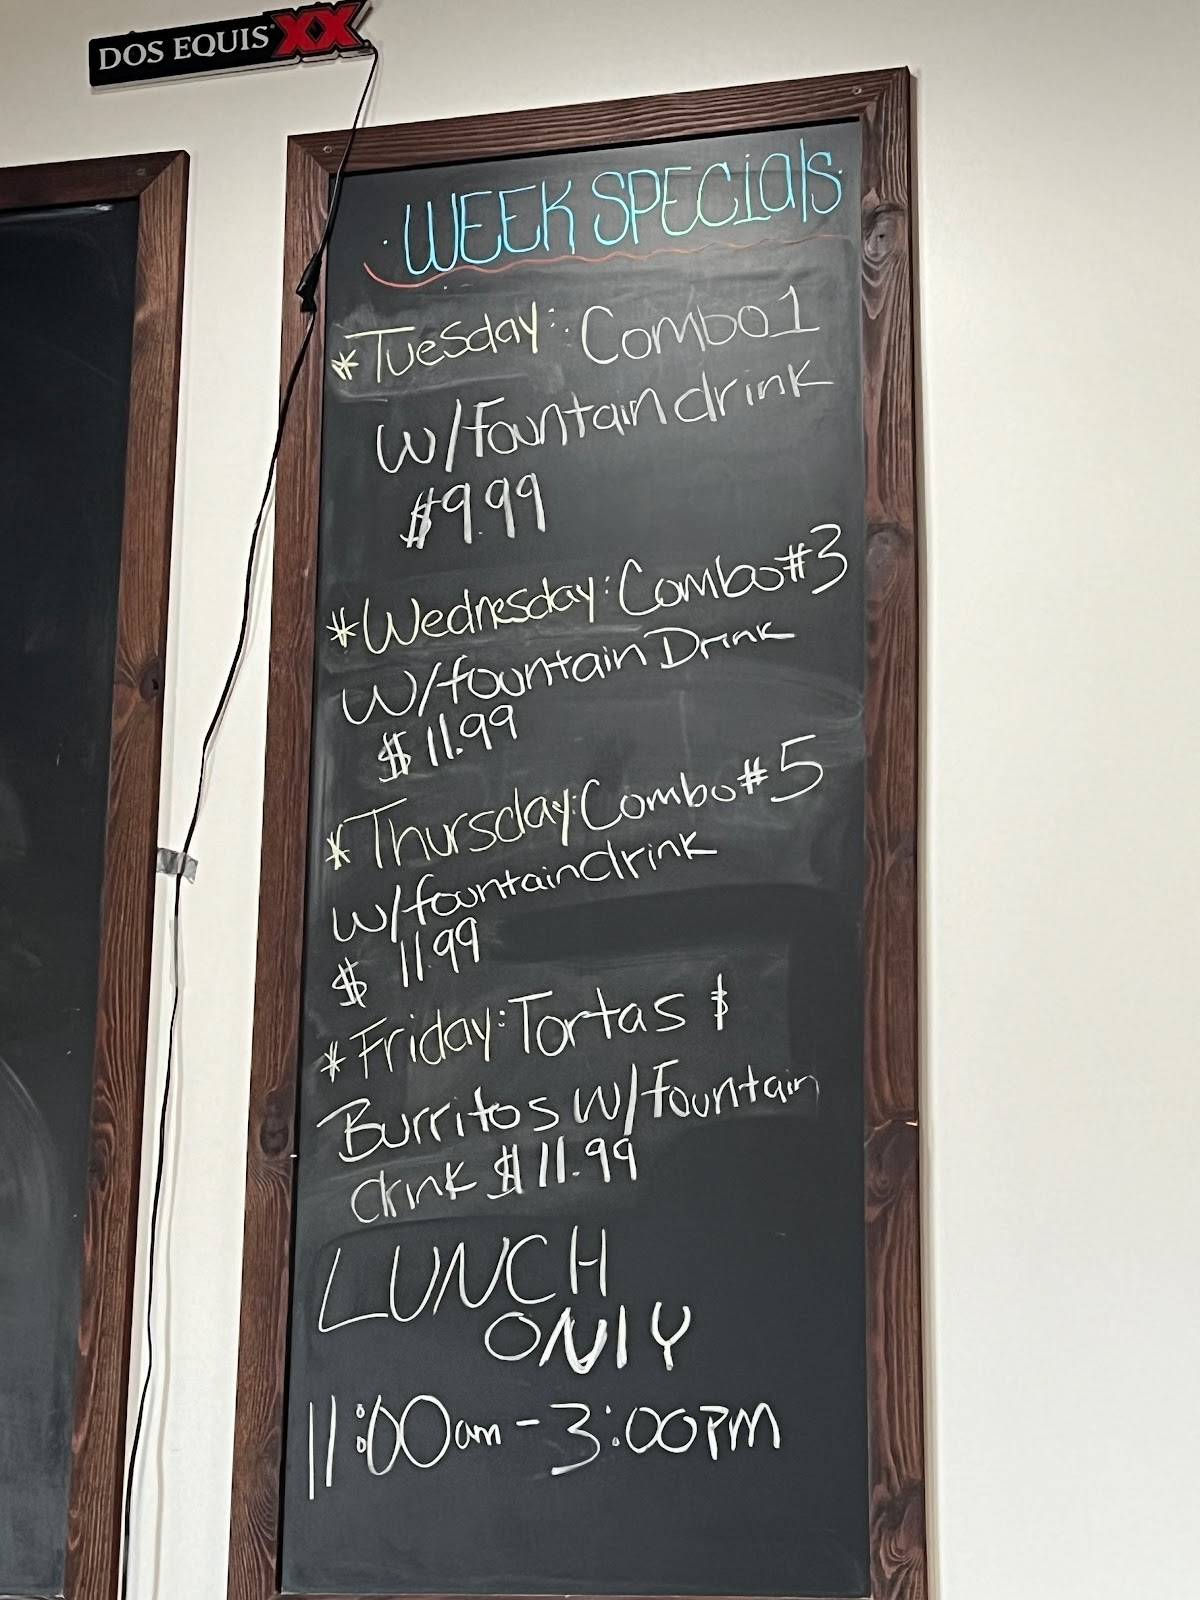 DOS EQUIS XX
WEEK SPECIals
*Tuesday: Combo 1
w/fountain drink
$9.99
*Wednesday: Combo #3
w/fountain Drink
$11.99
*Thursday: Combo #5
w/fountain drink
$ 11.99
*Friday: Tortas $
Burritos w/fountain
drink $11.99
LUNCH
ONlY
11:00am - 3:00PM